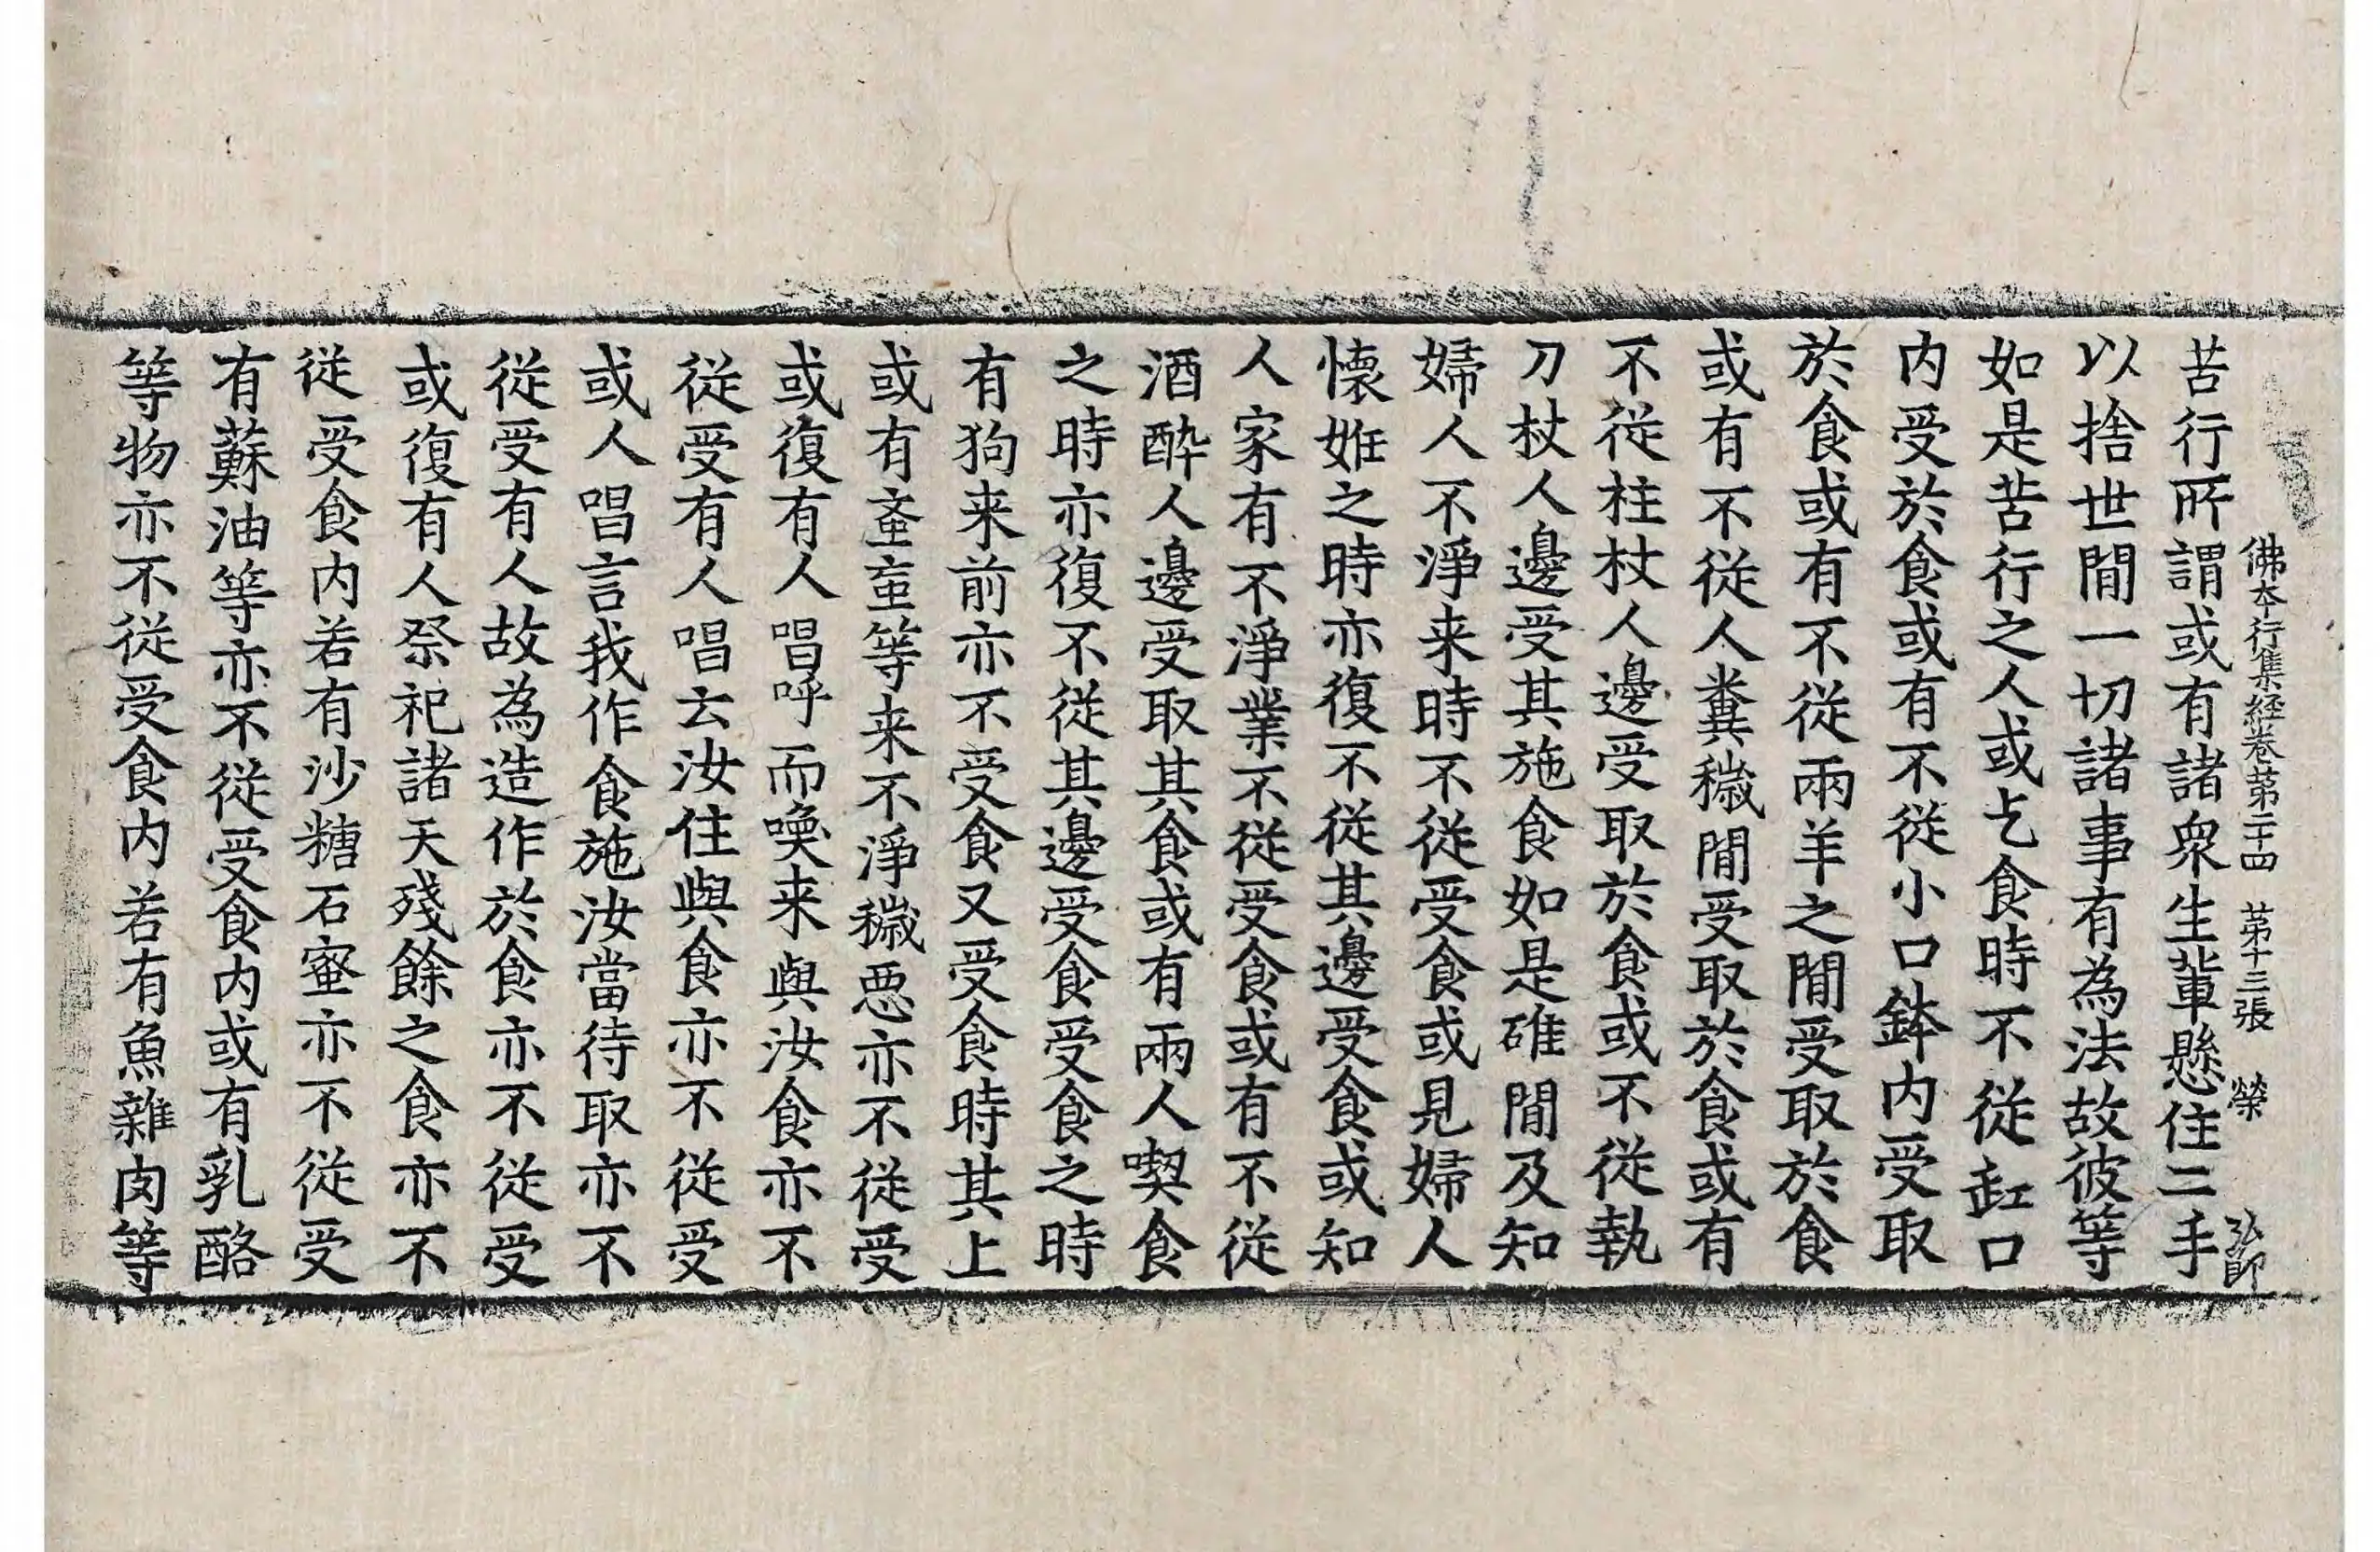 佛本行集經卷苐二十四　苐十三張　榮　弘師
苦行所謂或有諸衆生軰懸住二手
以捨世閒一切諸事有為法故彼等
如是苦行之人或乞食時不從缸口
内受於食或有不從小口鉢内受取
於食或有不從兩羊之閒受取於食
或有不從人糞穢閒受取於食或有
不從柱杖人邊受取於食或不從執
刀杖人邊受其施食如是碓閒及知
婦人不淨来時不從受食或見婦人
懐姙之時亦復不從其邊受食或知
人家有不淨業不從受食或有不從
酒醉人邊受取其食或有兩人喫食
之時亦復不從其邊受食受食之時
有狗来前亦不受食又受食時其上
或有䖝䖝等来不淨穢惡亦不從受
或復有人唱呼而喚来與汝食亦不
從受有人唱云汝住與食亦不從受
或人唱言我作食施汝當待取亦不
從受有人故為造作於食亦不從受
或復有人祭祀諸天殘餘之食亦不
從受食内若有沙糖石蜜亦不從受
有蘇油等亦不從受食内或有乳酪
等物亦不從受食内若有魚雜肉等